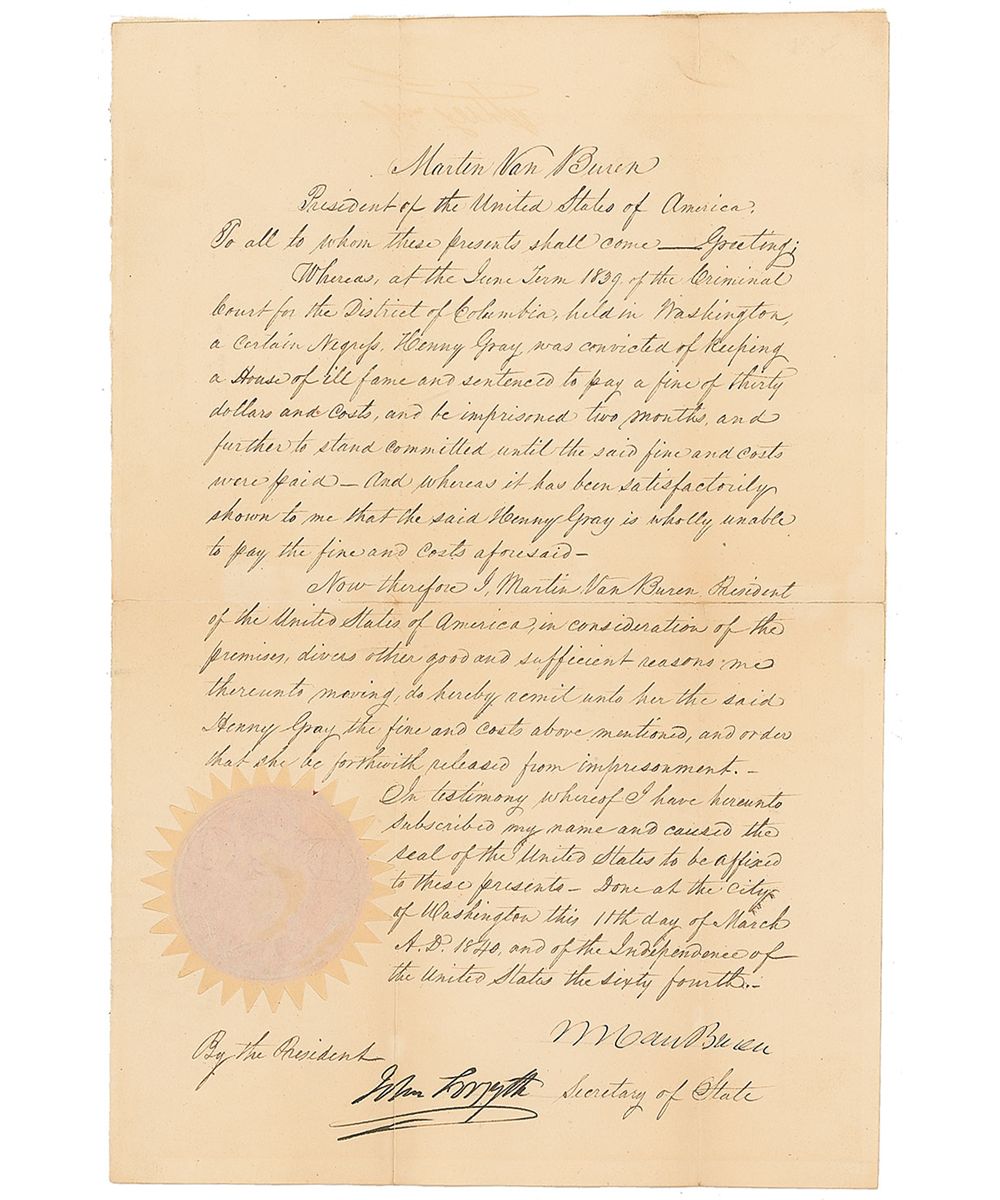 Martin Van Buren
President of the United States of America.
To all to whom these presents shall come — Greeting;
Whereas, at the June Term 1839, of the Criminal
Court for the District of Columbia, held in Washington,
a certain Negress, Henny Gray, was convicted of keeping
a House of ill fame and sentenced to pay a fine of thirty
dollars and costs, and be imprisoned two months, and
further to stand committed until the said fine and costs
were paid — And whereas it has been satisfactorily
shown to me that the said Henny Gray is wholly unable
to pay the fine and costs aforesaid —
Now therefore I, Martin Van Buren President
of the United States of America, in consideration of the
premises, divers other good and sufficient reasons me
thereunto moving, do hereby remit unto her the said
Henny Gray the fine and costs above mentioned, and order
that she be forthwith released from imprisonment. —
In testimony whereof I have hereunto
subscribed my name and caused the
seal of the United States to be affixed
to these presents — Done at the city
of Washington this 11th day of March
A.D. 1840, and of the Independence of
the United States the sixty fourth. —
M Van Buren
By the President
John Forsyth Secretary of State